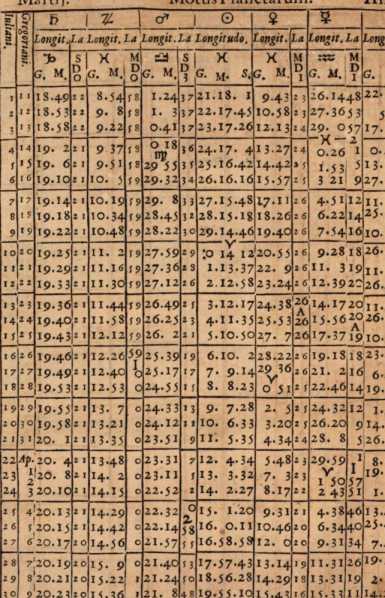 Martij. Motus Planetarum.
Iuliani. Gregoriani. ♄ ♃ ♂ ☉ ♀ ☿
Longit. La Longit. La Longit. La Longitudo. Longit. La Longit. La
♓ S D ♓ M D ♎ S D ♓ ♓ M D ♒ M D
G. M. O G. M. O G. M. 3 G. M. S. G. M. 1 G. M. 1
1 11 18.49 22 8.54 58 1.24 37 21.18. 1 9.43 23 26.14 48
2 12 18.53 22 9. 8 58 1. 3 37 22.17.45 10.58 23 27.36 53
3 13 18.58 22 9.22 58 0.41 37 23.17.26 12.13 24 29. 0 57
4 14 19. 2 21 9 37 58 0 18 36 24.17. 4 13.27 24 0.26 1
5 15 19. 6 21 9.51 58 29 55 35 25.16.42 14.42 25 1.53 5
6 16 19.10 21 10. 5 59 29.32 34 26.16.16 15.57 25 3 21 9
7 17 19.14 21 10.19 59 29. 8 33 27.15.48 17.11 26 4.51 12
8 18 19.18 21 10.34 59 28.45 32 28.15.18 18.26 26 6.22 14
9 19 19.22 21 10.48 59 28.22 30 29.14.46 19.40 26 7.54 16
♈
10 20 19.25 21 11. 2 59 27.59 29 0 14 12 20.55 26 9.28 18
11 21 19.29 21 11.16 59 27.36 28 1.13.37 22. 9 26 11. 3 19
12 22 19.33 21 11.30 59 27.12 26 2.12.58 23.24 26 12.39 20
13 23 19.36 21 11.44 59 26.49 25 3.12.17 24.38 26 14.17 20
14 24 19.40 21 11.58 59 26.25 23 4.11.35 25.53 A 26 15.56 20
15 25 19.43 21 12.12 59 26. 2 21 5.10.50 27. 7 26 17.37 A 19
16 26 19.46 21 12.26 59 25.39 19 6.10. 2 28.22 26 19.18 18
17 27 19.49 21 12.40 1 25.17 17 7. 9.14 29 36 26 21. 2 16
18 28 19.53 21 12.53 0 24.55 15 8. 8.23 0 51 25 22.46 14
19 29 19.55 21 13. 7 0 24.33 13 9. 7.28 2. 5 25 24.32 12
20 30 19.58 21 13.21 0 24.12 11 10. 6.33 3.20 25 26.20 9
21 31 20. 1 21 13.35 0 23.51 9 11. 5.35 4.34 24 28. 8 5
22 Ap. 1 20. 4 21 13.48 0 23.31 7 12. 4.34 5.48 23 29.59 1
23 2 20. 8 21 14. 2 0 23.11 13. 3.32 7. 3 23 1 50 57
24 3 20.10 21 14.15 0 22.52 2 14. 2.27 8.17 22 2 43 51
25 4 20.13 21 14.29 0 22.32 0 15. 1.20 9.31 21 4.38 46
26 5 20.15 21 14.42 0 22.14 58 16. 0.11 10.46 20 6.34 40
27 6 20.17 20 14.56 0 21.57 55 16.58.58 12. 0 20 9.31 34
28 7 20.19 20 15. 9 0 21.40 53 17.57.43 13.14 19 11.31 26
29 8 20.21 20 15.22 1 21.24 50 18.56.28 14.29 18 13.31 19
30 9 20.23 20 15.36 21. 8 48 19.55.10 15.43 16 15.33 11